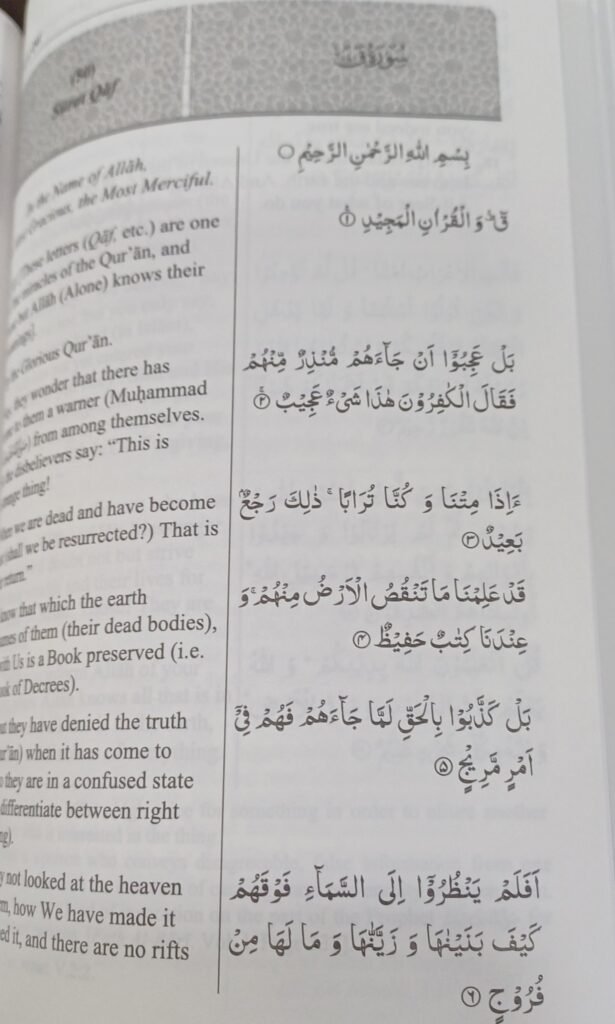 (50)
Sûrat Qâf
سُوْرَةُ قٓ
the Name of Allâh,
Gracious, the Most Merciful.
letters (Qâf, etc.) are one
miracles of the Qur'ân, and
Allâh (Alone) knows their
Glorious Qur'ân.
they wonder that there has
to them a warner (Muḥammad
from among themselves.
disbelievers say: “This is
thing!
we are dead and have become
shall we be resurrected?) That is
return.”
know that which the earth
of them (their dead bodies),
Us is a Book preserved (i.e.
of Decrees).
they have denied the truth
when it has come to
they are in a confused state
differentiate between right
not looked at the heaven
how We have made it
and there are no rifts
بِسْمِ اللّٰهِ الرَّحْمٰنِ الرَّحِيْمِ ○
قٓ ۚ وَ الْقُرْاٰنِ الْمَجِيْدِ ۝۱
بَلْ عَجِبُوْۤا اَنْ جَآءَهُمْ مُّنْذِرٌ مِّنْهُمْ
فَقَالَ الْكٰفِرُوْنَ هٰذَا شَيْءٌ عَجِيْبٌ ۝۲
ءَاِذَا مِتْنَا وَ كُنَّا تُرَابًا ۚ ذٰلِكَ رَجْعٌۢ
بَعِيْدٌ ۝۳
قَدْ عَلِمْنَا مَا تَنْقُصُ الْاَرْضُ مِنْهُمْ ۚ وَ
عِنْدَنَا كِتٰبٌ حَفِيْظٌ ۝۴
بَلْ كَذَّبُوْا بِالْحَقِّ لَمَّا جَآءَهُمْ فَهُمْ فِيْۤ
اَمْرٍ مَّرِيْجٍ ۝۵
اَفَلَمْ يَنْظُرُوْۤا اِلَى السَّمَآءِ فَوْقَهُمْ
كَيْفَ بَنَيْنٰهَا وَ زَيَّنّٰهَا وَ مَا لَهَا مِنْ
فُرُوْجٍ ۝۶